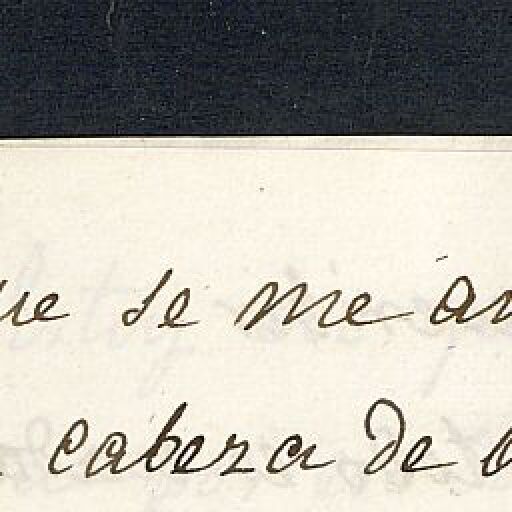 se me
cabeza de